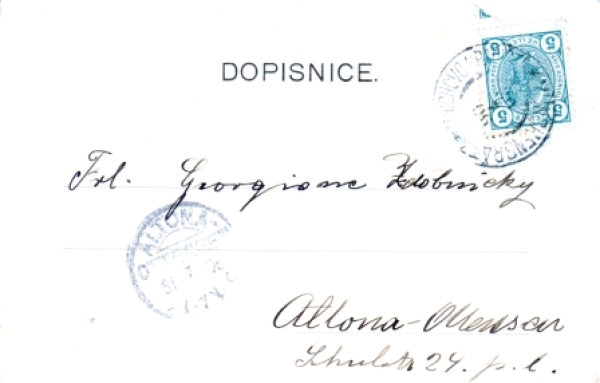 DOPISNICE.
5 5
5 5
Frl. Georgione Zdobnicky
ALTONA-
Altona-Ottensen
Schulstr 24. p. l.